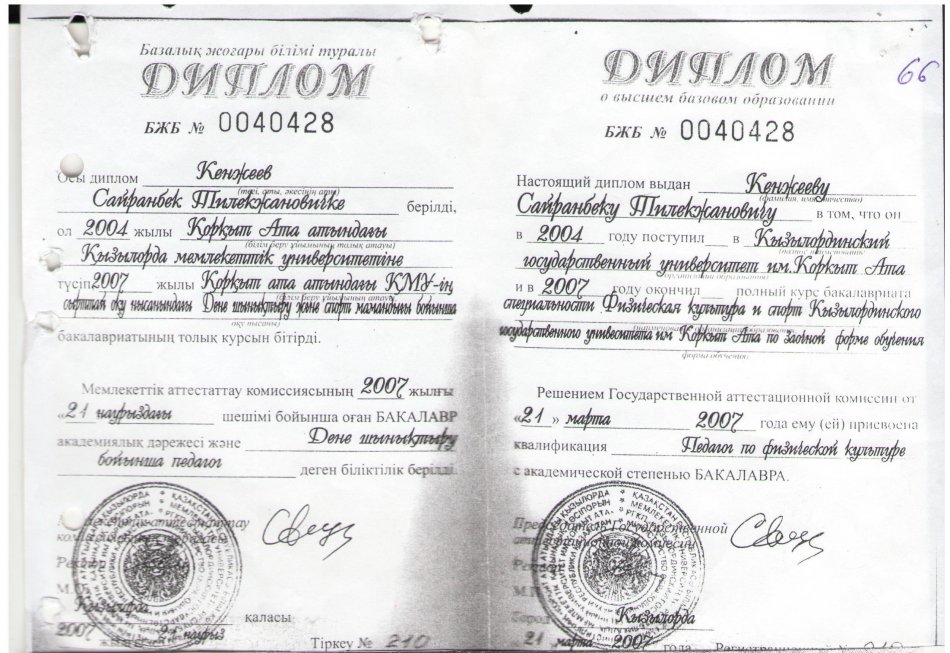 Базалық жоғары білімі туралы
ДИПЛОМ
БЖБ № 0040428
Осы диплом Кенжеев
(тегі, аты, әкесінің аты)
Сайранбек Тилекжановичке берілді,
ол 2004 жылы Қорқыт Ата атындағы
(білім беру ұйымының толық атауы)
Қызылорда мемлекеттік университетіне
түсіп 2007 жылы Қорқыт ата атындағы ҚМУ-ің
(білім беру ұйымының атауы)
сырттай оқу нысанындағы Дене шынықтыру және спорт мамандығы бойынша
(оқу нысаны)
бакалавриатының толық курсын бітірді.
Мемлекеттік аттестаттау комиссиясының 2007 жылғы
«21 наурыздағы шешімі бойынша оған БАКАЛАВР
академиялық дәрежесі және Дене шынықтыру
бойынша педагог деген біліктілік берілді.
Қызылорда қаласы
2007 21 наурыз
Тіркеу № 210
ДИПЛОМ
о высшем базовом образовании
БЖБ № 0040428
66
Настоящий диплом выдан Кенжееву
(фамилия, имя, отчество)
Сайранбеку Тилекжановичу в том, что он
в 2004 году поступил в Кызылординский
государственный университет им.Коркыт Ата
и в 2007 году окончил полный курс бакалавриата
специальности Физическая культура и спорт Кызылординского
государственного университета им Коркыт Ата по заочной форме обучения
форма обучения
Решением Государственной аттестационной комиссии от
«21 » марта 2007 года ему (ей) присвоена
квалификация Педагог по физической культуре
с академической степенью БАКАЛАВРА.
Председатель Государственной
аттестационной комиссии
Ректор
М.П.
Город Кызылорда
21 марта 2007 года Регистрационный № 210